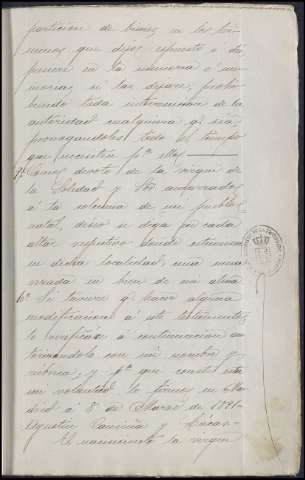 particion de bienes en los ter-
minos que dejo espuesto ó dis-
pusiere en la memoria ó me-
morias si las dejare, prohi-
biendo toda intervencion de la
autoridad cualquiera q. sea
prorrogandoles todo el tiempo
que necesiten p.ª ello
9ª Como devoto de la virgen de
la Soledad y
á la columna de mi pueblo
natal, deseo se diga en cada
altar respectivo donde estuviesen
en dicha localidad, una misa
rezada en bien de mi alma
10ª Si tuviere q. hacer alguna
modificacion á este testamento,
lo verificaré á continuacion au-
torizándola con mi nombre y
rúbrica, y p.ª que conste es
mi voluntad, lo firmo en Ma-
drid á 8 de Marzo de 1891-
Agustin y
El manuscrito la virgen